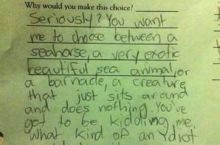 Why would you make this choice?
Seriously? You want
me to chose between a
seahorse, a very exotic
beautiful sea animal, or
a barnacle, a creature
that just sits around
and does nothing. You've
got to be kidding me,
what kind of an ydiot